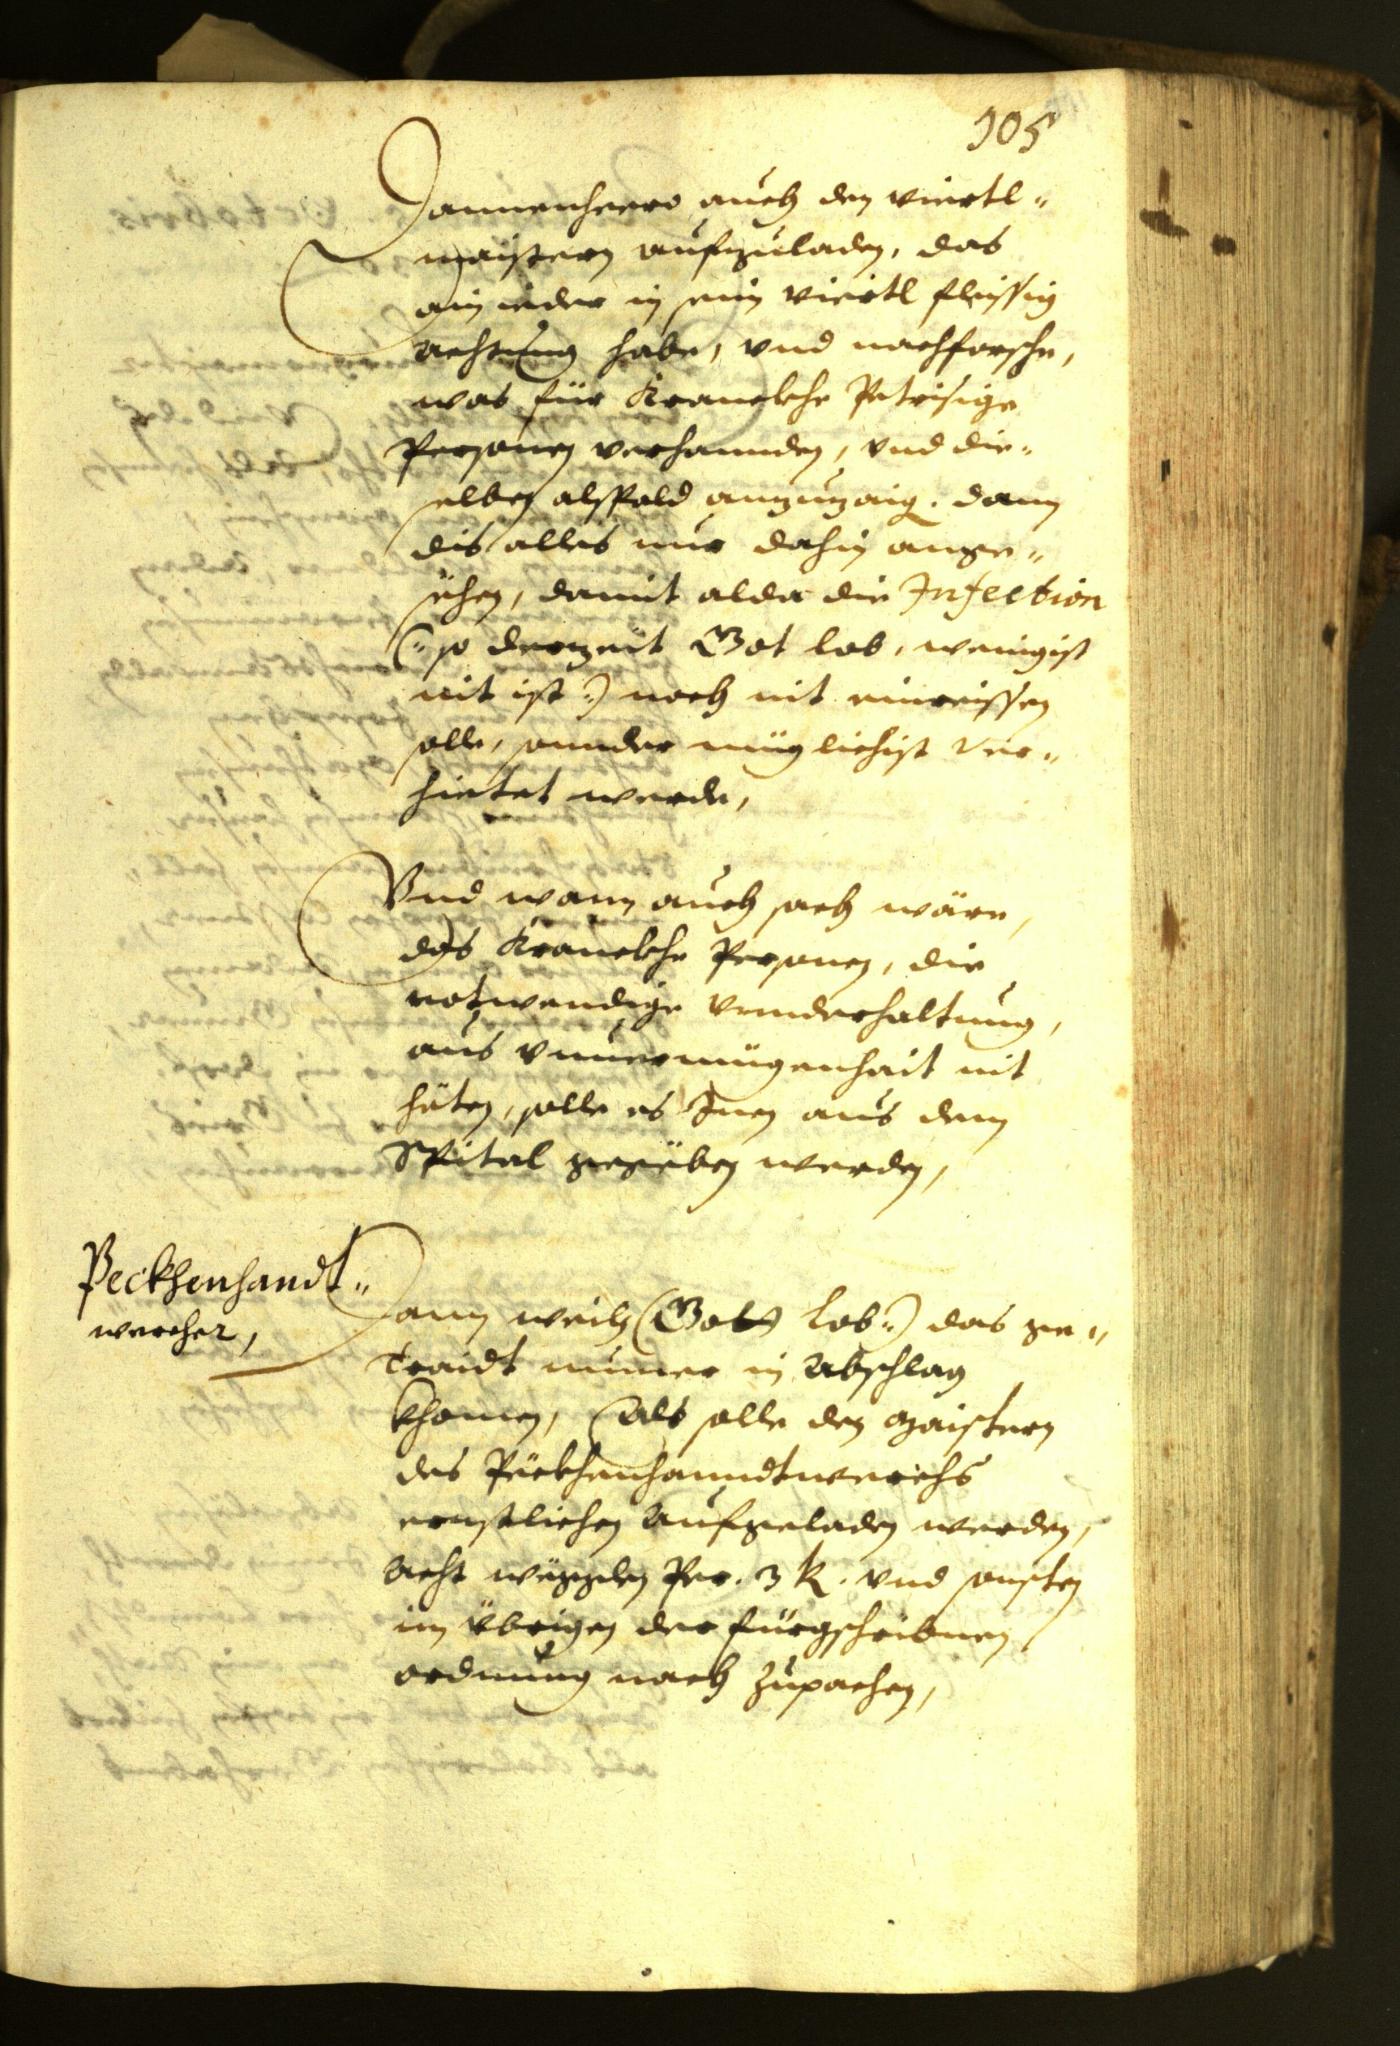 105
Dannenheero auch den Viertl-
maistern aufzuladen, das
ain ieder in sein Viertl fleissig
achtung habe, vnd nachforsche,
was für Kranckhe Petrisige
Personen verhannden, vnd die-
selben alspald anzuzaig. dann
dis alles nur dahin ange-
sëhen, damit alda die Infection
(: so derzeit Got lob, wenigist
nit ist :) noch nit einreissen
solle, sonnder müglichist ver-
hietet werde,
Vnd wann auch sach wäre,
das Kranckhe Personen, die
notwendige vnnderhaltung,
aus vnuermügenhait nit
häten, solle es Inen aus dem
Spital gegëben werden,
Peckhenhandt-
wercher,
Dann weiln (Got lob :) das ge-
traidt nuner in Abschlag
khomen, als solle den Maistern
des Pëckhenhanndtwerchs
ernstlichen aufgeladen werden,
acht wëgglen Per. 3 k. vnd sonsten
im Übrigen der fürgschribnen
ordnung nach zupachen,